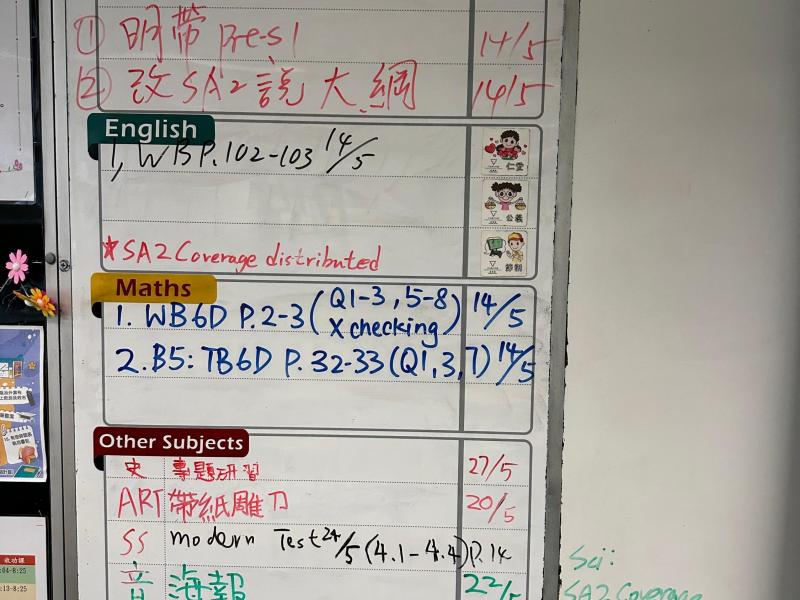 ① 明帶 pre-s1 14/5
② 改SA2說大綱 14/5
English
1, WB P.102-103 14/5
仁愛
公義
節制
*SA2 Coverage distributed
Maths
1. WB6D P.2-3 (Q1-3, 5-8 X checking) 14/5
2. B5: TB6D P. 32-33 (Q1, 3, 7) 14/5
Other Subjects
史 專題研習 27/5
ART 帶紙雕刀 20/5
SS modern Test 24/5 (4.1-4.4) P.14
音 海報 22/5
Sci:
SA2 Coverage
收功課
:04-8:25
:13-8:25